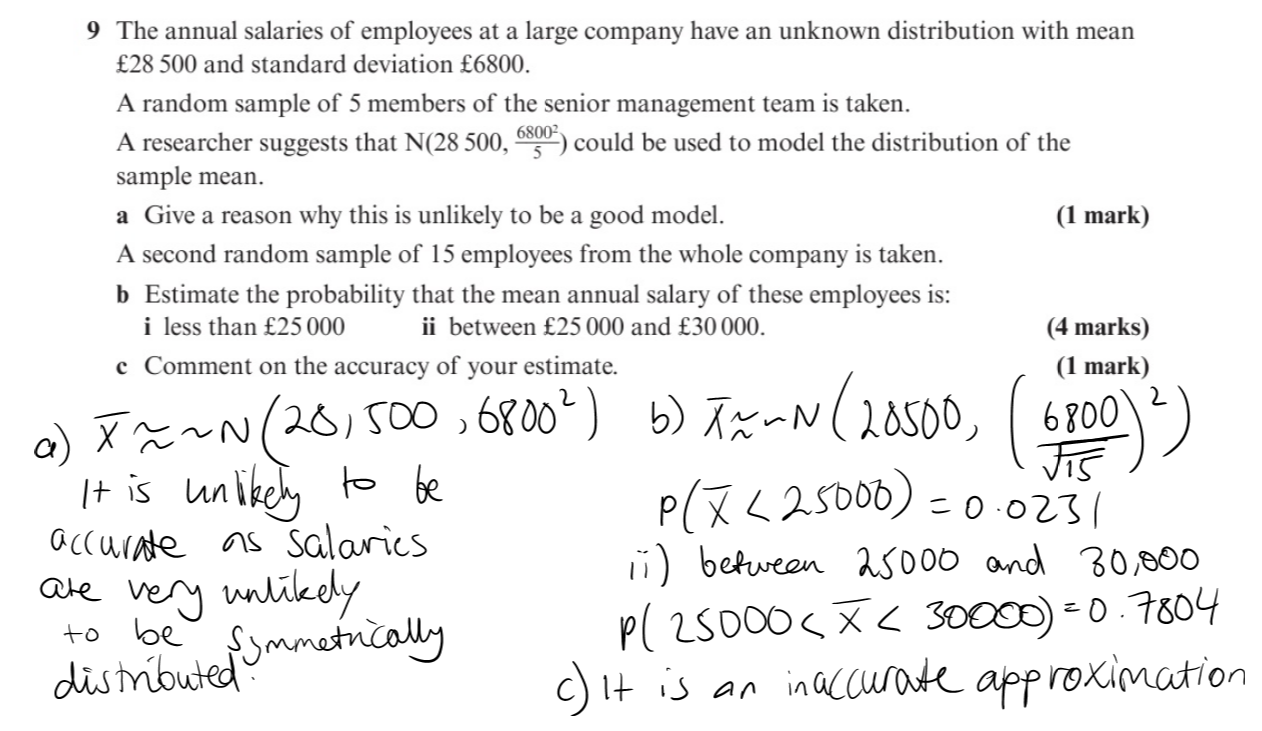 9 The annual salaries of employees at a large company have an unknown distribution with mean
£28 500 and standard deviation £6800.
A random sample of 5 members of the senior management team is taken.
A researcher suggests that N(28 500, 6800²/5) could be used to model the distribution of the
sample mean.
a Give a reason why this is unlikely to be a good model. (1 mark)
A second random sample of 15 employees from the whole company is taken.
b Estimate the probability that the mean annual salary of these employees is:
i less than £25 000 ii between £25 000 and £30 000. (4 marks)
c Comment on the accuracy of your estimate. (1 mark)
a) X̅ ≈~N(28,500, 6800²)
It is unlikely to be
accurate as salaries
are very unlikely
to be symmetrically
distributed.
b) X̅ ≈~N(28500, (6800/√15)²)
P(X̅ < 25000) = 0.0231
ii) between 25000 and 30,000
P(25000 < X̅ < 30000) = 0.7804
c) It is an inaccurate approximation